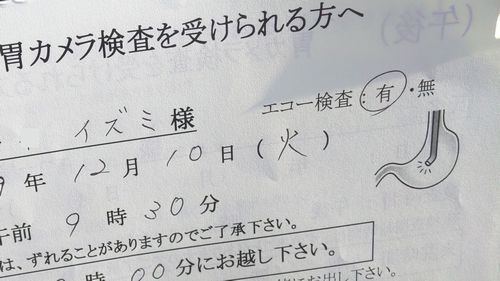 胃カメラ検査を受けられる方へ
イズミ様
エコー検査:有・無
9年12月10日(火)
午前 9時30分
は、ずれることがありますのでご了承下さい。
時00分にお越し下さい。
にお出し下さい。